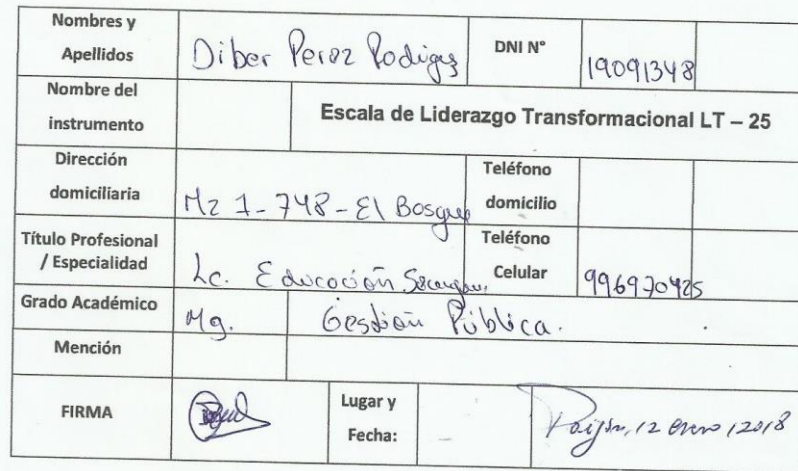 Nombres y
Apellidos
Diber Perez Rodigz
DNI N°
19091348
Nombre del
instrumento
Escala de Liderazgo Transformacional LT – 25
Dirección
domiciliaria
Mz 1-748-El Bosque
Teléfono
domicilio
Título Profesional
/ Especialidad
Lc. Educación
Teléfono
Celular
996970425
Grado Académico
Mg. Gestión Pública.
Mención
FIRMA
Lugar y
Fecha:
Paiján, 12 enero, 2018